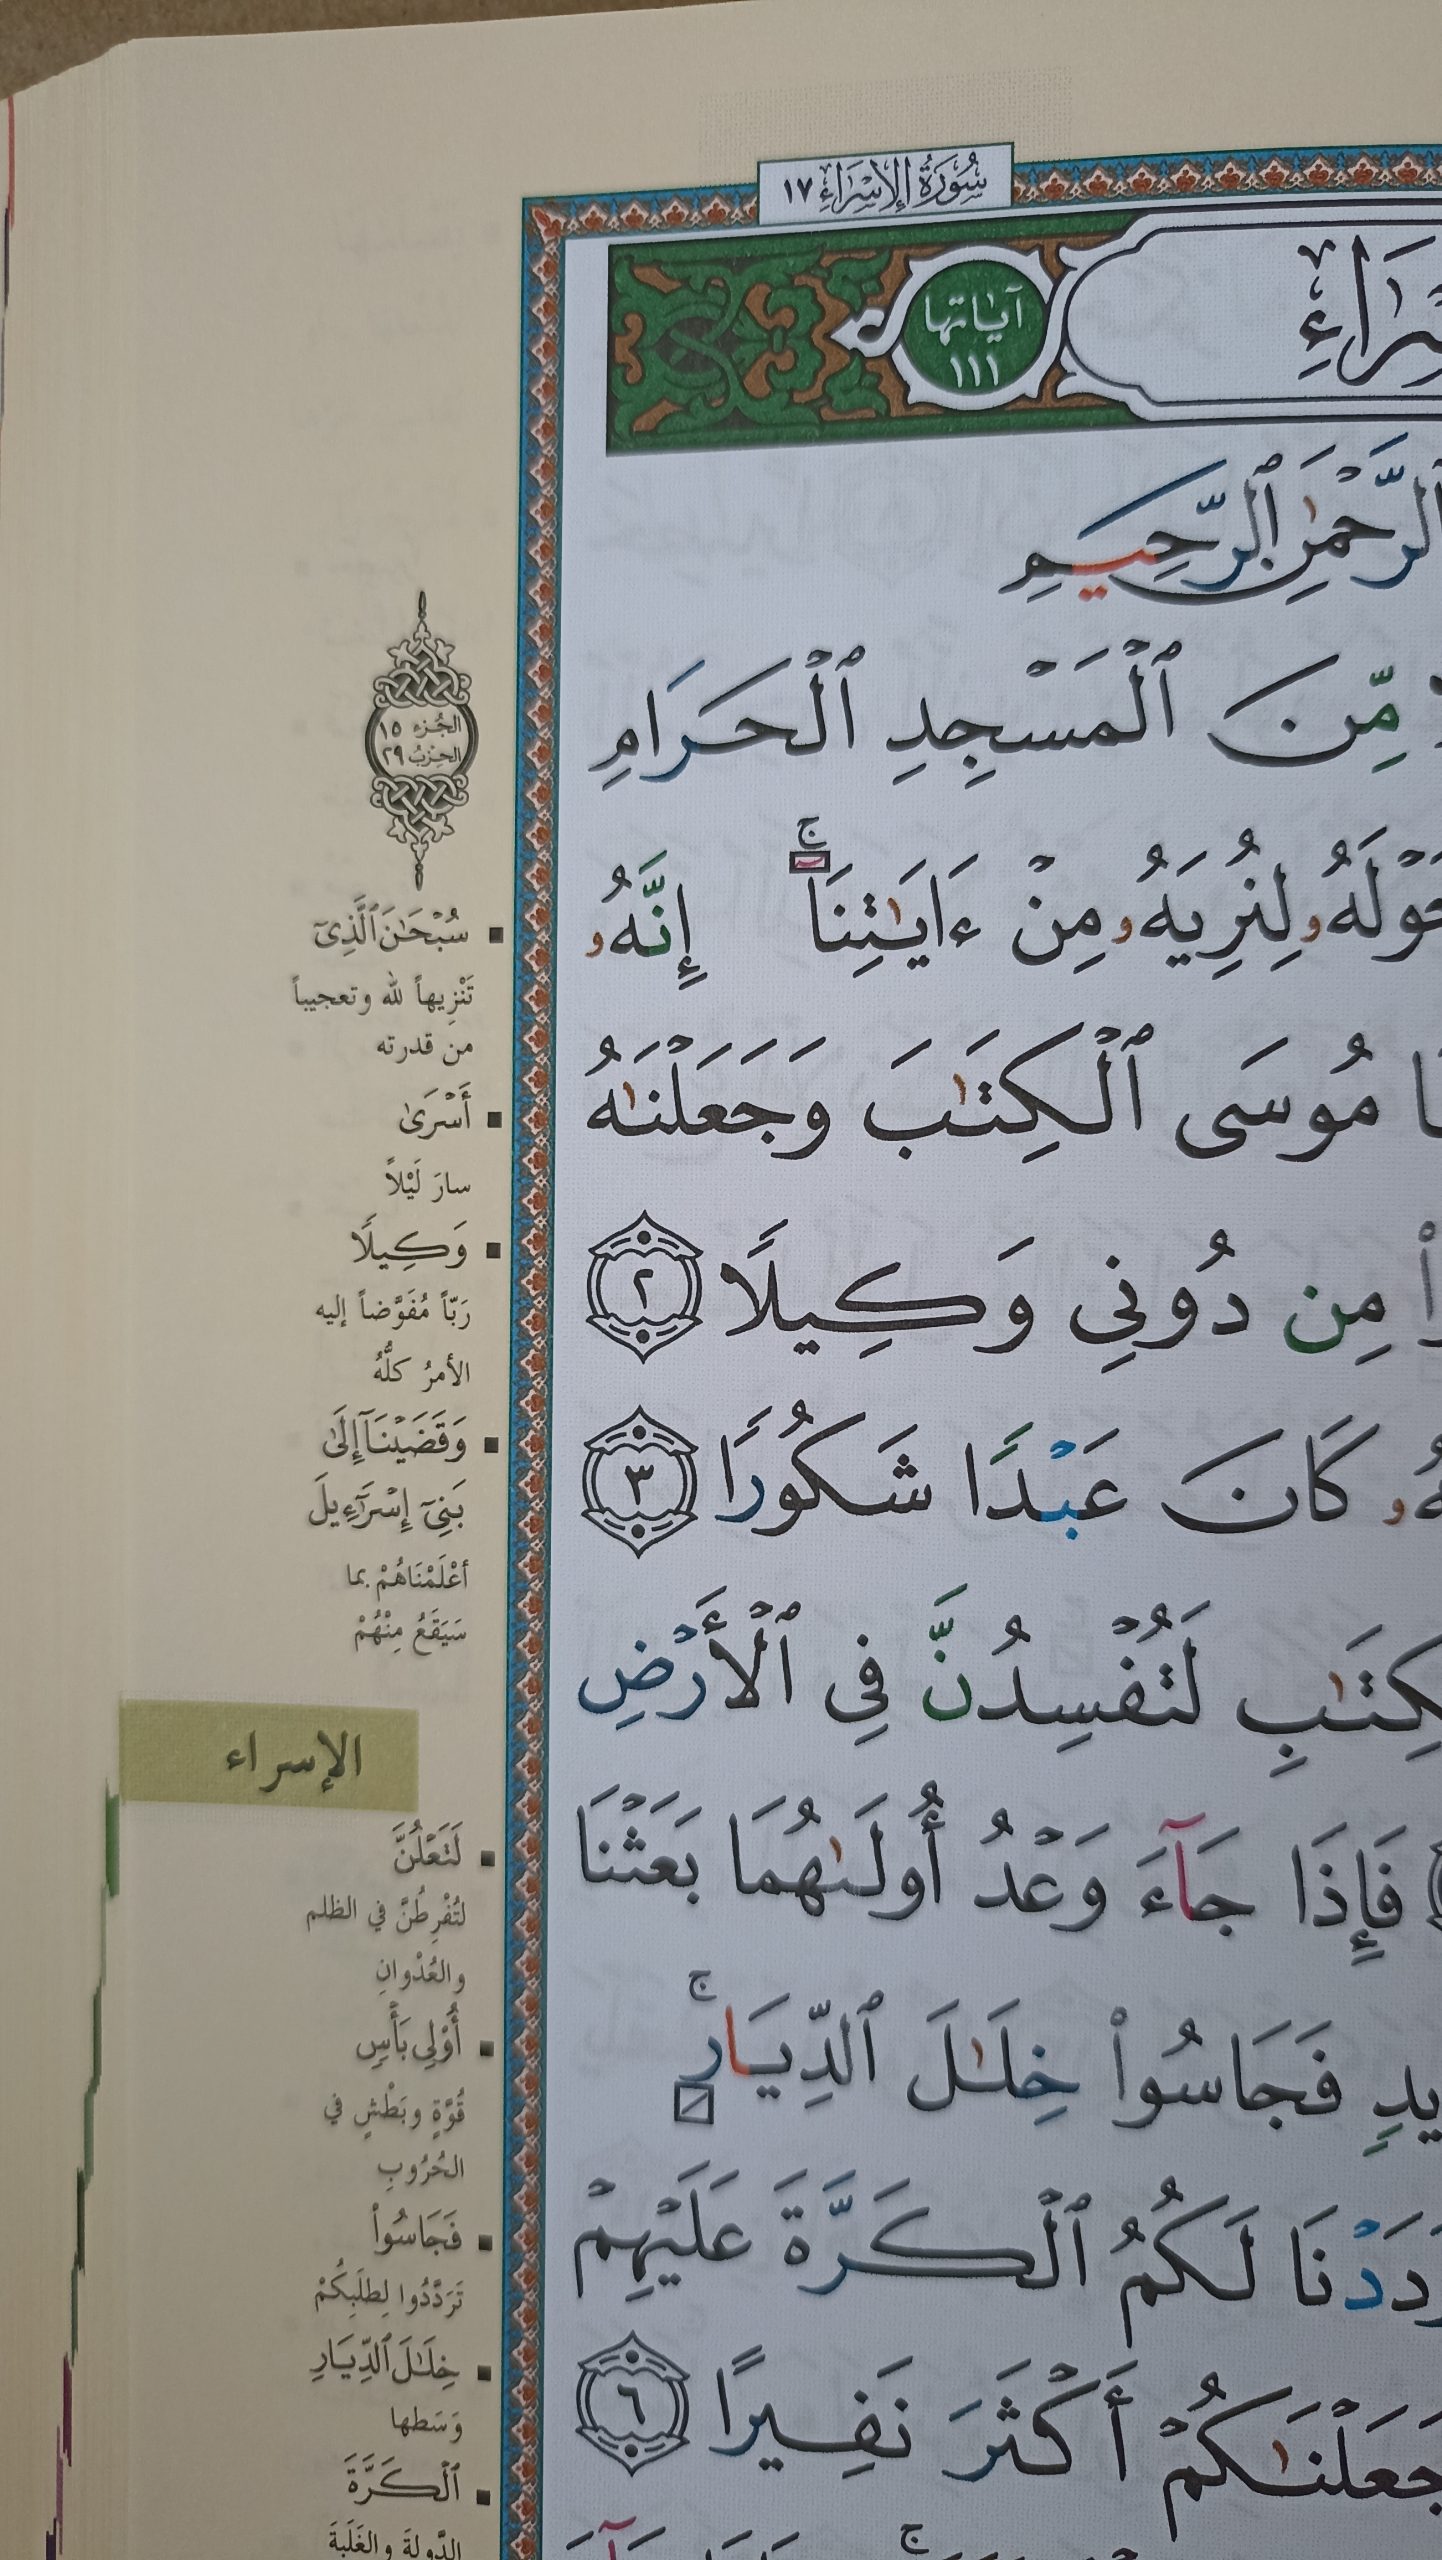 سُورَةُ الإِسْرَاءِ ١٧
آياتها
١١١
ٱلرَّحْمَٰنِ ٱلرَّحِيمِ
مِّنَ ٱلْمَسْجِدِ ٱلْحَرَامِ
لِنُرِيَهُۥ مِنْ ءَايَٰتِنَا ۚ إِنَّهُۥ
مُوسَى ٱلْكِتَٰبَ وَجَعَلْنَٰهُ
مِن دُونِي وَكِيلًا ٢
كَانَ عَبْدًا شَكُورًا ٣
لَتُفْسِدُنَّ فِي ٱلْأَرْضِ
فَإِذَا جَآءَ وَعْدُ أُولَىٰهُمَا بَعَثْنَا
فَجَاسُوا۟ خِلَٰلَ ٱلدِّيَارِ ۚ
لَكُمُ ٱلْكَرَّةَ عَلَيْهِمْ
أَكْثَرَ نَفِيرًا ٦
الجُزء ١٥
الحِزبُ ٢٩
سُبْحَٰنَ ٱلَّذِيٓ
تَنْزِيهاً لله وتعجيباً
من قدرته
أَسْرَىٰ
سارَ لَيْلاً
وَكِيلًا
رَبّاً مُفَوَّضاً إليه
الأمرُ كلُّهُ
وَقَضَيْنَآ إِلَىٰ
بَنِيٓ إِسْرَٰٓءِيلَ
أعْلَمْنَاهُمْ بما
سَيَقَعُ مِنْهُمْ
الإسراء
لَتَعْلُنَّ
لتُفْرِطُنَّ في الظلم
والعُدْوانِ
أُوْلِي بَأْسٍ
قُوَّةٍ وبَطْشٍ في
الحُرُوبِ
فَجَاسُوا۟
تَرَدَّدُوا لِطَلَبِكُمْ
خِلَٰلَ ٱلدِّيَارِ
وَسَطها
ٱلْكَرَّةَ
الدَّولةَ والغَلَبَةَ